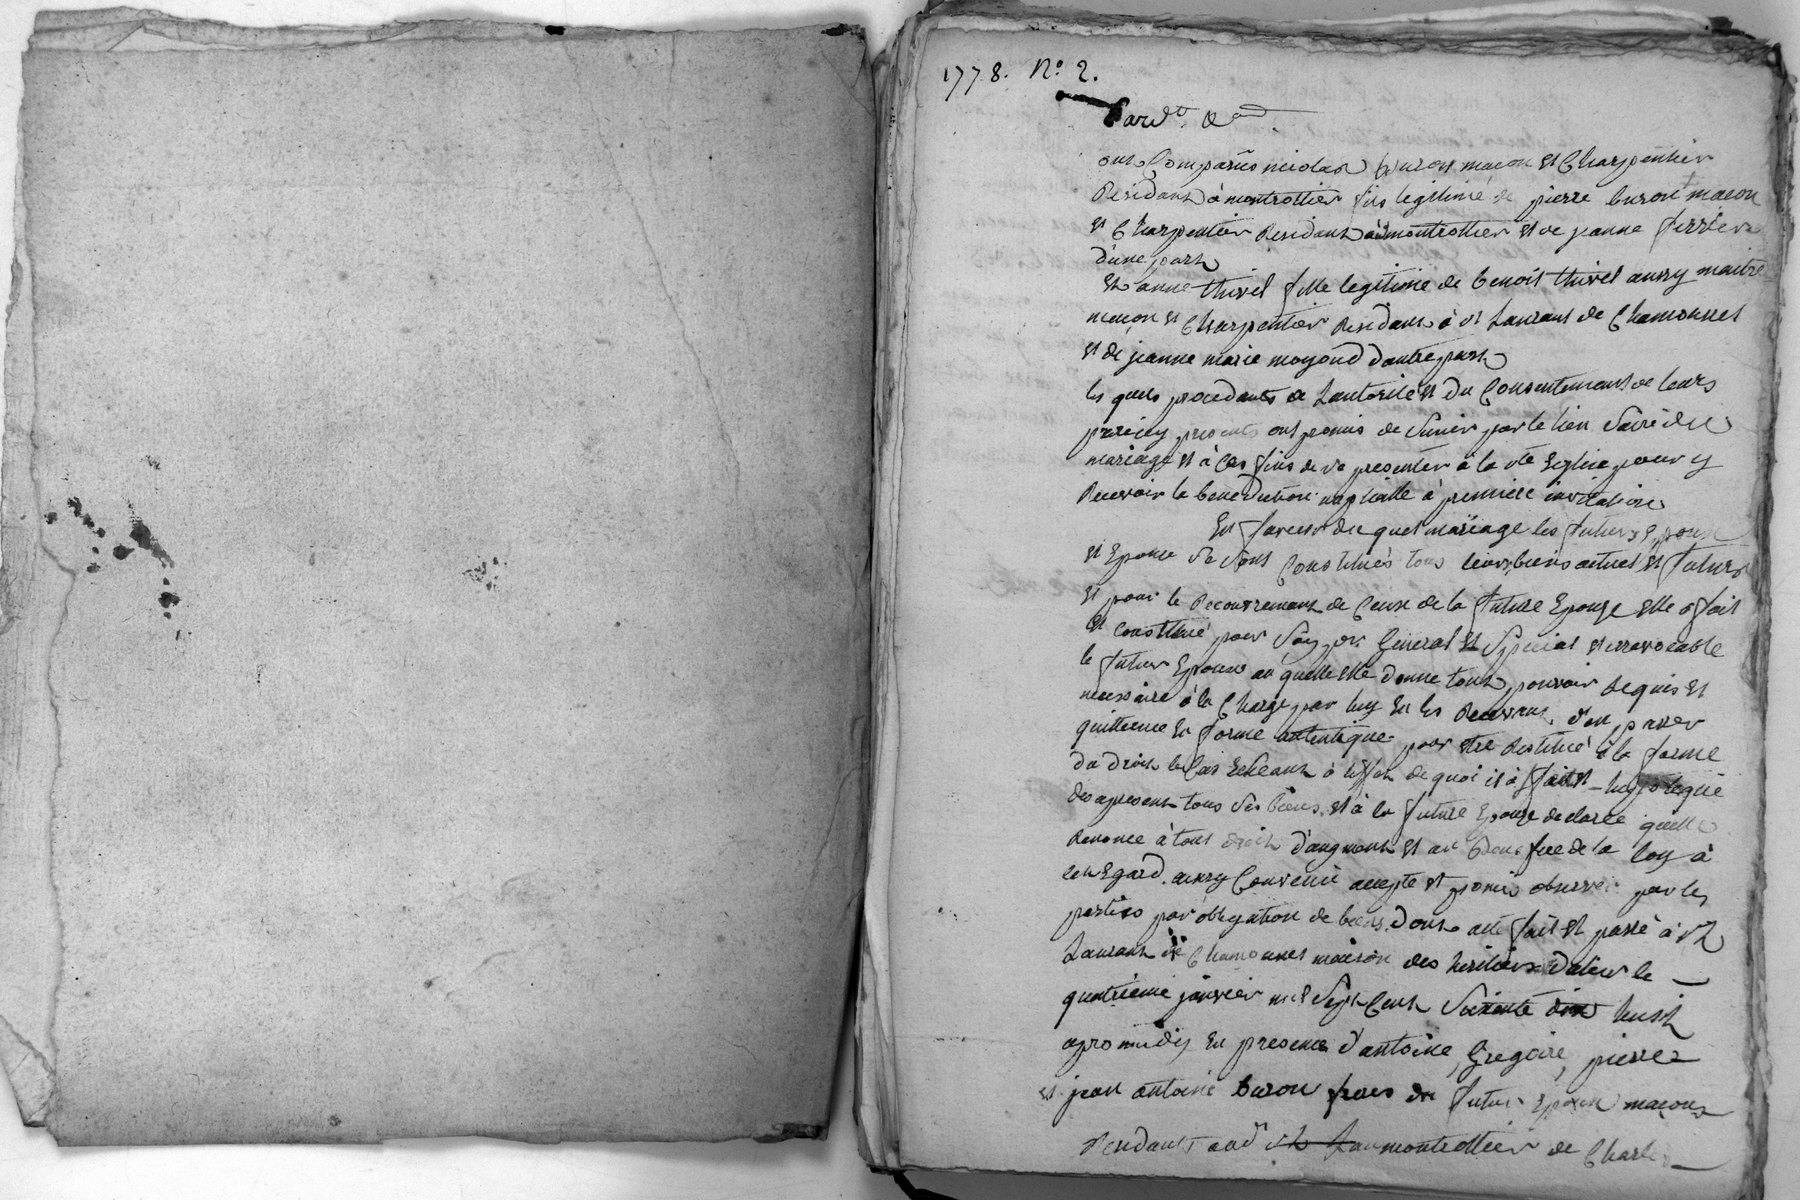 1778. No. 2.
Pard.t &
ont Comparus nicolas buron maçon et Charpentier
Residant à montrottier fils legitime de pierre buron maçon
et Charpentier Residant à montrottier et de jeanne ferriere
d'une part
Et anne thivel fille legitime de benoit thivel aussy maitre
maçon et Charpentier Residant à st Laurant de Chamousset
et de jeanne marie moyoud d'autre part
les quels procedants de Lautorité et du Consentement de leurs
presents ont promis de s'unir par le lien sacré du
mariage et à ces fins de se presenter à la ste Eglise pour y
Recevoir la benediction nuptialle à premiere invitation
En faveur du quel mariage les futurs Epoux
et Epouse se sont Constitués tous leurs biens actuels et futurs
et pour le Recouvrement de Ceux de la future Epouse elle a fait
et constitué pour son pr General et Special et irrevocable
le futur Epoux au quelle elle donne tout pouvoir Requis et
necessaire à la Charge par luy En les Recevant d'en passer
quittance En forme autentique pour etre Restitué à la forme
du Droit le Cas Echeant à leffet de quoi il a fait et hypotequé
des apresent tous ses biens et à la future Epouse declaré quelle
Renonce à tout droit d'augment et au benefice de la loy à
cet Egard aussy Convenu accepté et promis observer par les
parties par obligation de biens Dont acte fait et passé à st
Laurant de Chamousset maison des heritiers le
quatrieme janvier mil Sept Cent Soixante dix huit
apres midy En presence d'antoine, Gregoire, pierre
et jean antoine buron freres du futur Epoux maçons
Residants aud st Lau montrottier de Charles